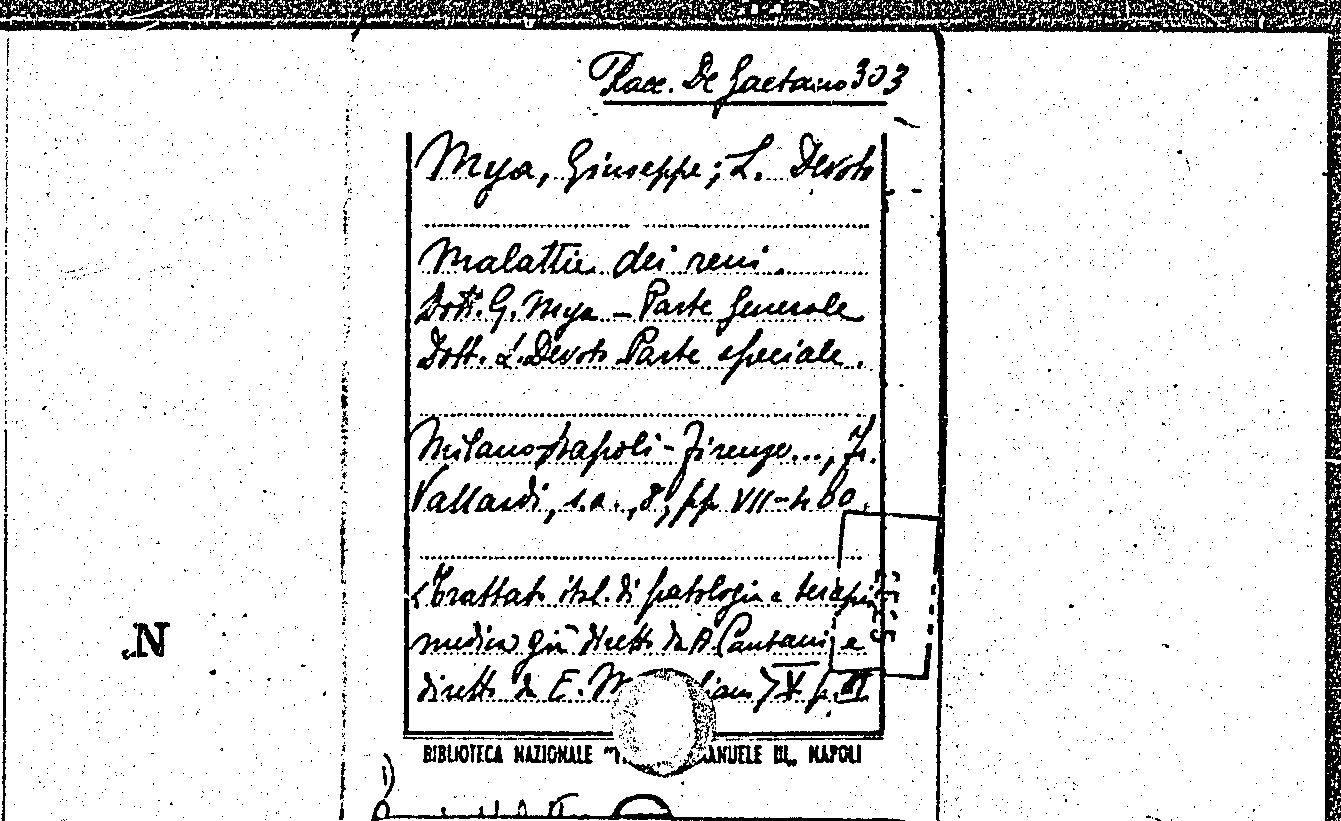 Racc. De Gaetano 303
Mya, Giuseppe; L. Devoto
Malattie dei reni.
Dott. G. Mya - Parte Generale
Dott. L. Devoto Parte speciale.
Milano-Napoli-Firenze..., Fr.
Vallardi, s.a., 8°, pp VII-460.
<Trattato ital. di patologia e terapia
medica già diretto da A. Cantani e
diretto da E. M liani> V p. III
N.
BIBLIOTECA NAZIONALE "V MANUELE III„ NAPOLI